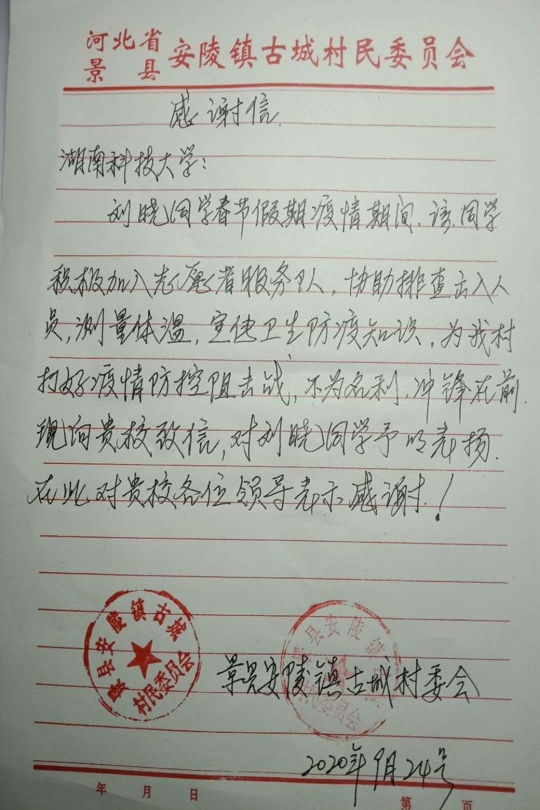 河北省
景 县
安陵镇古城村民委员会
感谢信
湖南科技大学:
刘晓同学春节假期疫情期间,该同学
积极加入志愿者服务工人,协助排查出入人
员,测量体温,宣传卫生防疫知识,为我村
打好疫情防控阻击战,不为名利,冲锋在前.
现向贵校致信,对刘晓同学予以表扬.
在此对贵校各位领导表示感谢!
景县安陵镇古城
村民委员会
景县安陵镇
村民委员会
景县安陵镇古城村委会
2020年9月24号
年 月 日 第 页